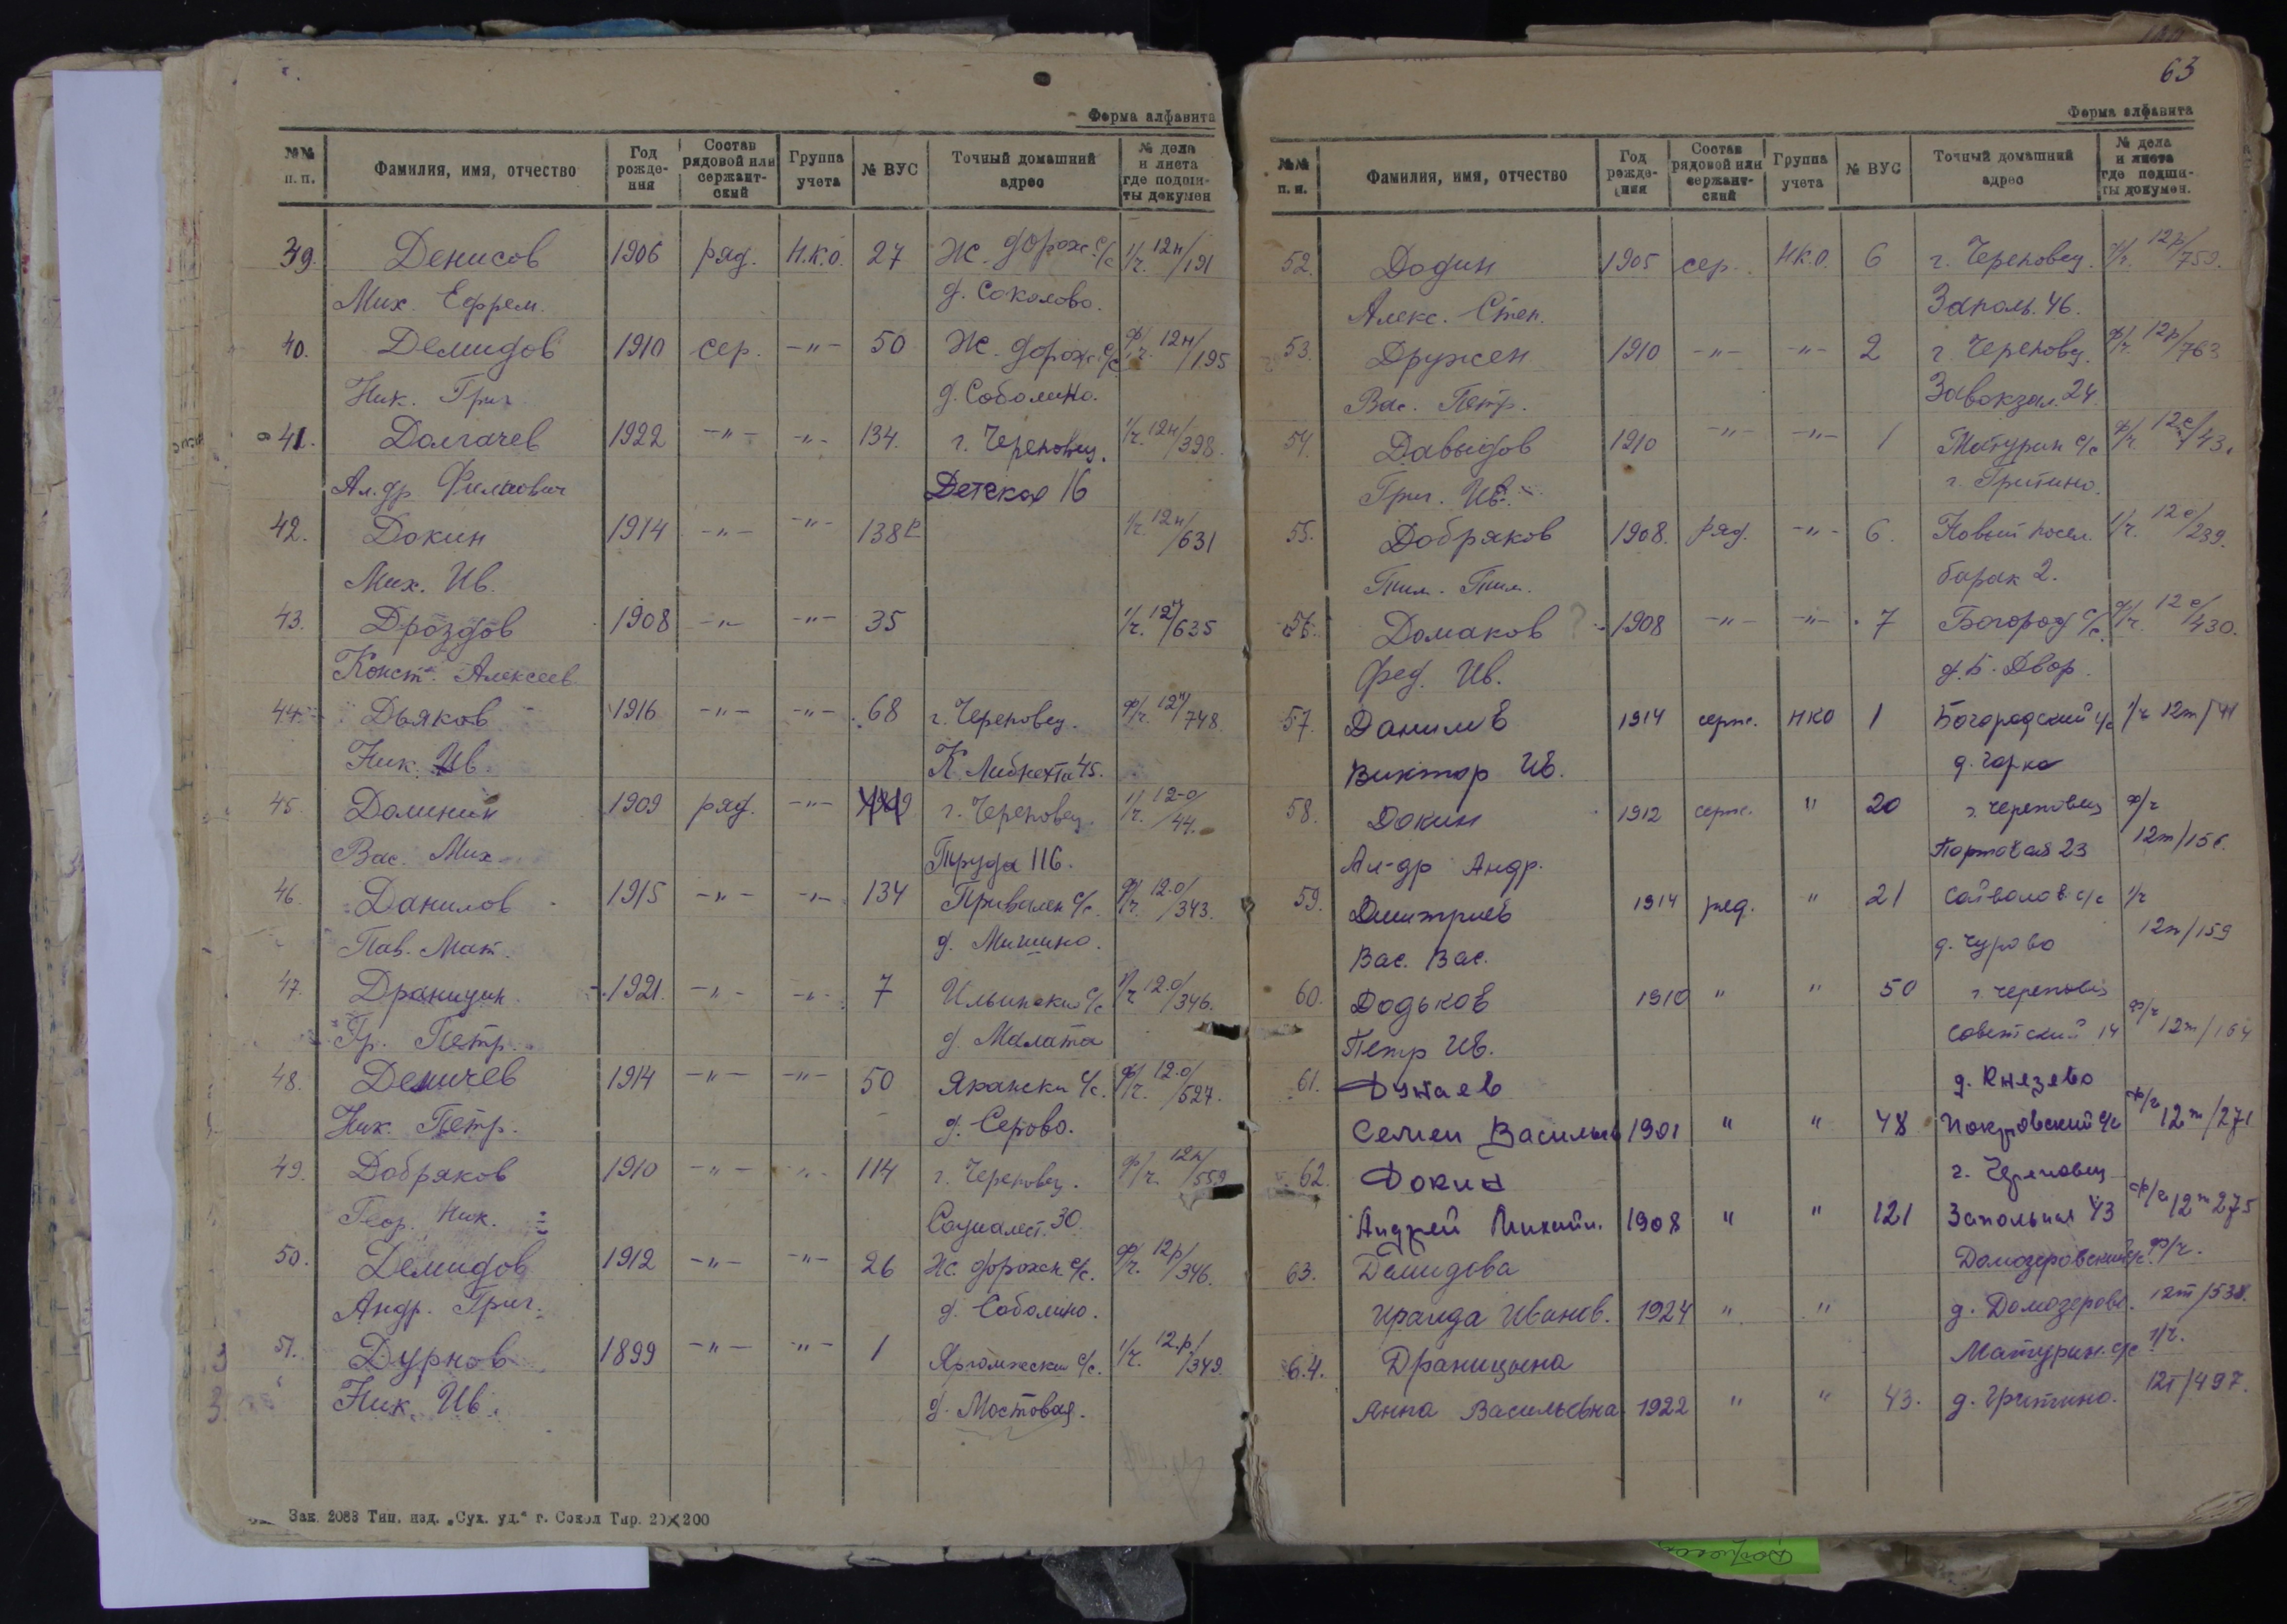 Форма алфавита
№№ п. п. Фамилия, имя, отчество Год рождения Состав рядовой или сержантский Группа учета № ВУС Точный домашний адрес № дела и листа где подшиты докумен
39. Денисов 1906 ряд. Н.К.О. 27 Ж. дорож. с/с 1/г. 12н/191
Мих. Ефрем. д. Соколово.
40. Демидов 1910 сер. -"- 50 Ж. дорож. с/с ф/г. 12н/195
Ник. Григ. д. Соболино.
41. Долгачев 1922 -"- -"- 134. г. Череповец. 1/г. 12н/398.
Ал.др. Филипович Детская 16
42. Докин 1914 -"- -"- 138 1/г. 12н/631
Мих. Ив.
43. Дроздов 1908 -"- -"- 35 1/г. 12н/635
Конст. Алексеев
44. Дьяков 1916 -"- -"- 68 г. Череповец. ф/г. 12н/748.
Ник. Ив. К. Либкнехта 45.
45. Долинин 1909 ряд. -"- г. Череповец. 1/г. 12-о/44.
Вас. Мих. Труда 116.
46. Данилов 1915 -"- -"- 134 Привален с/с. ф/г. 12.о/343.
Пав. Мат. д. Мишино.
47. Драницин 1921. -"- -"- 7 Ильински с/с 1/г. 12.о/346.
Гр. Петр. д. Малата
48. Демичев 1914 -"- -"- 50 Яргански с/с. ф/г. 12.о/527.
Ник. Петр. д. Серово.
49. Добряков 1910 -"- -"- 114 г. Череповец. ф/г. 12п/559
Геор. Ник. Социалист. 30.
50. Демидов 1912 -"- -"- 26 Ж. дорожн. с/с. ф/г. 12р/346.
Андр. Григ. д. Соболино.
51. Дурнов 1899 -"- -"- 1 Яргомжски с/с. 1/г. 12.р/349.
Ник. Ив. д. Мостовая.
Зак. 2088 Тип. изд. „Сух. уд.“ г. Сокол Тир. 20×200
63
Форма алфавита
№№ п. п. Фамилия, имя, отчество Год рождения Состав рядовой или сержантский Группа учета № ВУС Точный домашний адрес № дела и листа где подшиты докумен.
52. Додин 1905 сер. НК.О. 6 г. Череповец. 1/г. 12р/759.
Алекс. Степ. Заполь. 46.
53. Дружен 1910 -"- -"- 2 г. Череповец. ф/г. 12р/763
Вас. Петр. Завокзал. 24
54. Давыдов 1910 -"- -"- 1 Матурин с/с ф/г. 12с/43.
Григ. Ив. г. Гритино.
55. Добряков 1908. ряд. -"- 6. Новый посел. 1/г. 12с/239.
Тим. Тим. барак 2.
56. Домаков ? 1908 -"- -"- 7 Богород с/с. ф/г. 12с/430.
Фед. Ив. д. Б. Двор.
57. Данилов 1914 серж. НКО 1 Богородский с/с 1/г 12т/41
Виктор Ив. д. Горка
58. Докин 1912 серж. " 20 г. Череповец ф/г
Ал-др Андр. Портовая 23 12т/156.
59. Дмитриев 1914 ряд. " 21 Сойволов. с/с 1/г
Вас. Вас. д. Чурово 12т/159
60. Додьков 1910 " " 50 г. Череповец ф/г
Петр Ив. Советский 14 12т/164
61. Дунаев д. Князево
Семен Васильев 1901 " " 48 Покровский с/с ф/г 12т/271
62. Докин г. Череповец
Андрей Михайл. 1908 " " 121 Запольная 43 ф/г 12т 275
63. Демидова Домозеровский с/с. ф/г.
Ираида Иванов. 1924 " " д. Домозерово. 12т/538.
64. Драницына Матурин. с/с 1/г.
Анна Васильевна 1922 " " 43. д. Гритино. 12т/497.